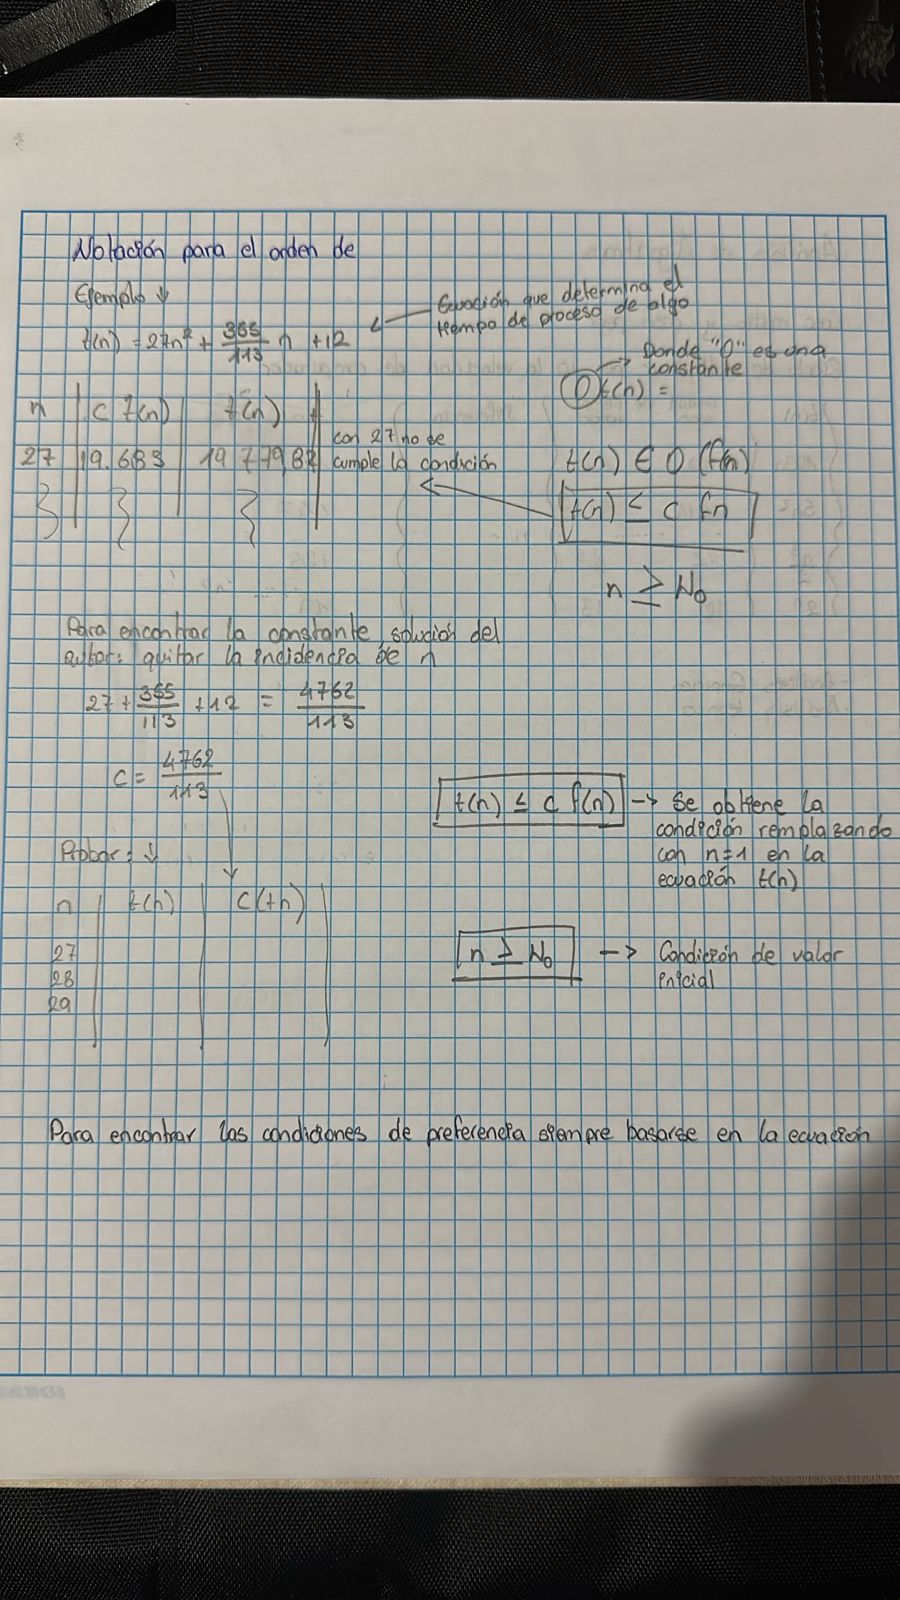 Notación para el orden de
Ejemplo ↓
Ecuación que determina el
tiempo de proceso de algo
t(n) = 27n² + 355/113 n + 12
Donde "O" es una
constante
O t(n) =
n | c f(n) | t(n)
27 | 19.683 | 19 7798
con 27 no se
cumple la condición
t(n) ∈ O (f(n)
t(n) ≤ c fn
n ≥ N₀
Para encontrar la constante, solución del
autor: quitar la incidencia de n
27 + 355/113 + 12 = 4762/113
c = 4762/113
t(n) ≤ c f(n) → Se obtiene la
condición remplazando
con n=1 en la
ecuación t(n)
Probar: ↓
n | t(n) | c(tn)
27
28
29
n ≥ N₀ → Condición de valor
inicial
Para encontrar las condiciones de preferencia siempre basarse en la ecuación